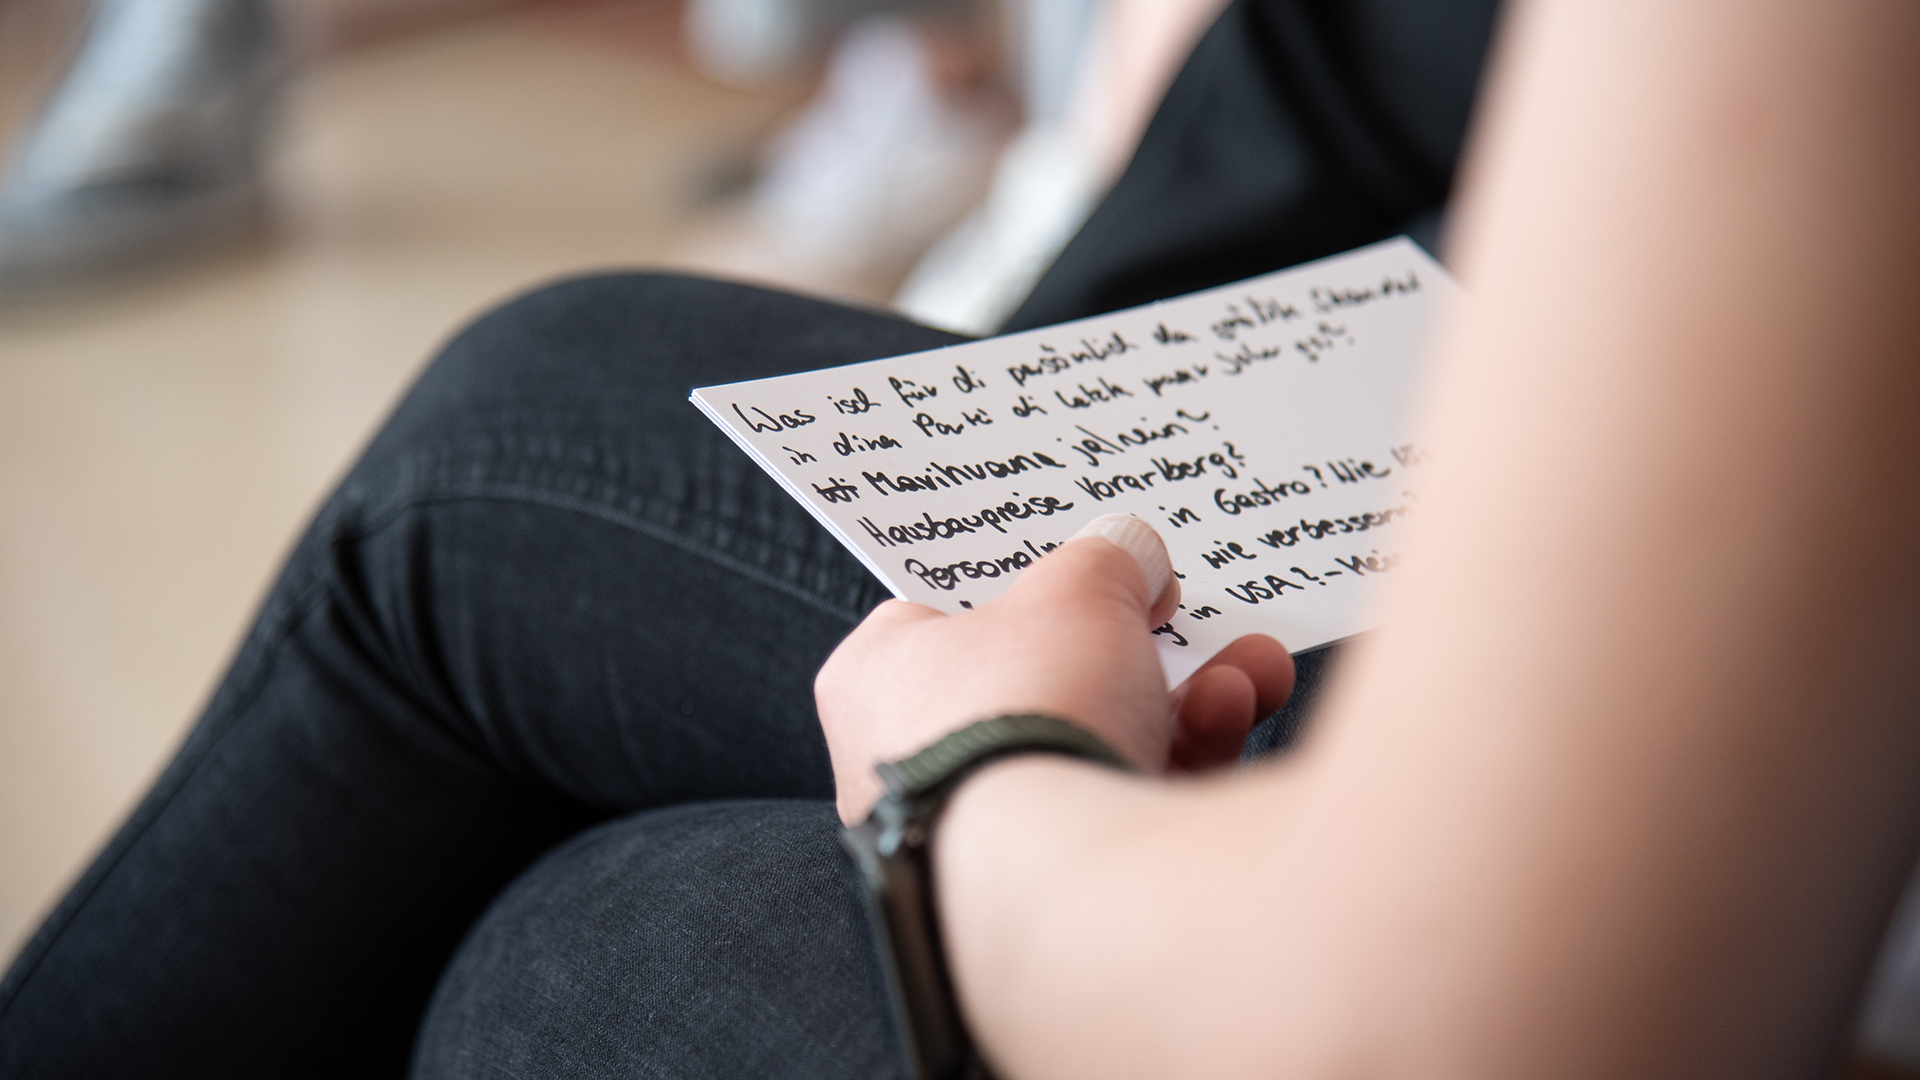 Was isch für di persönlich da größte Skandal
in diner Partei di letzte paar Johr gsi?
Marihuana ja/nein?
Hausbaupreise Vorarlberg?
in Gastro? Wie
wie verbessern?
in USA? -